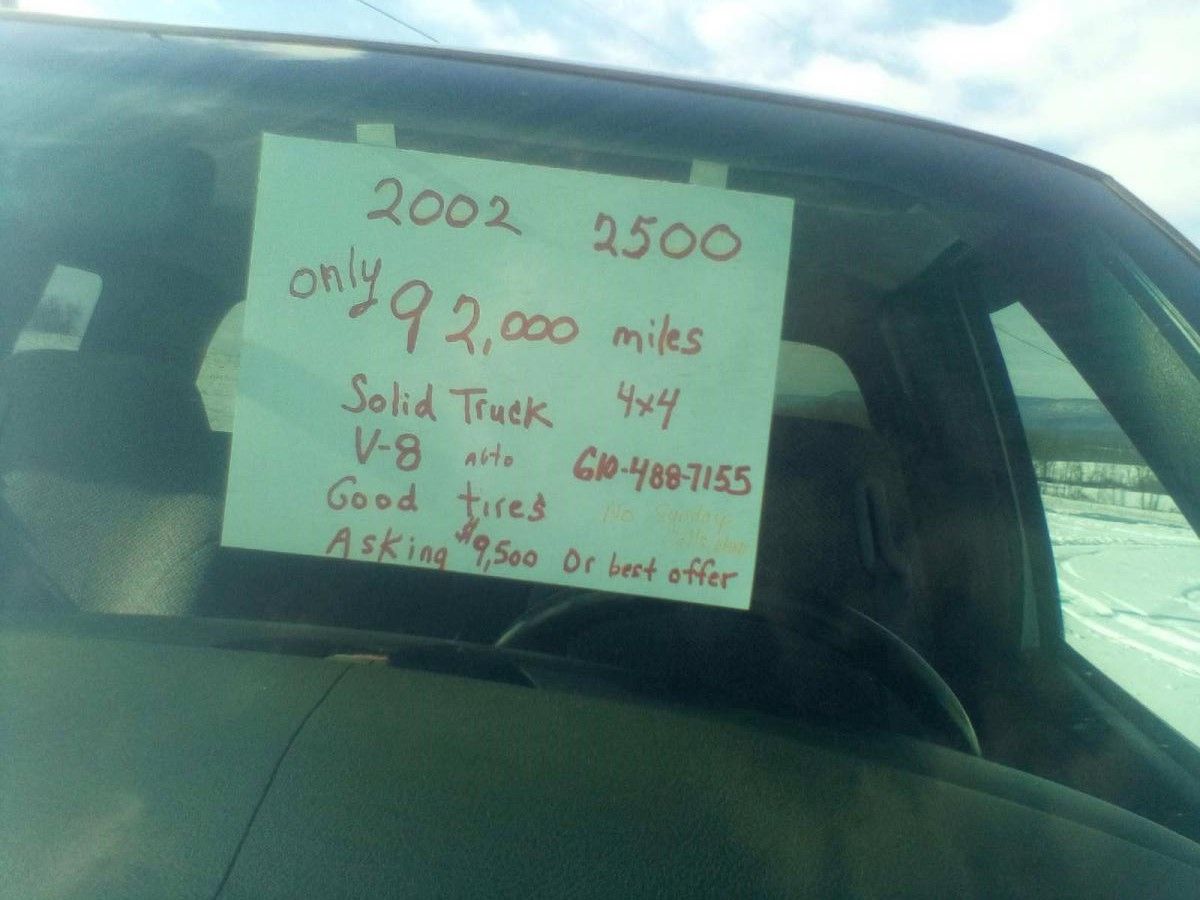 2002 2500
only 92,000 miles
Solid Truck 4x4
V-8 auto 610-488-7155
Good tires No Sunday
Asking $9,500 Or best offer